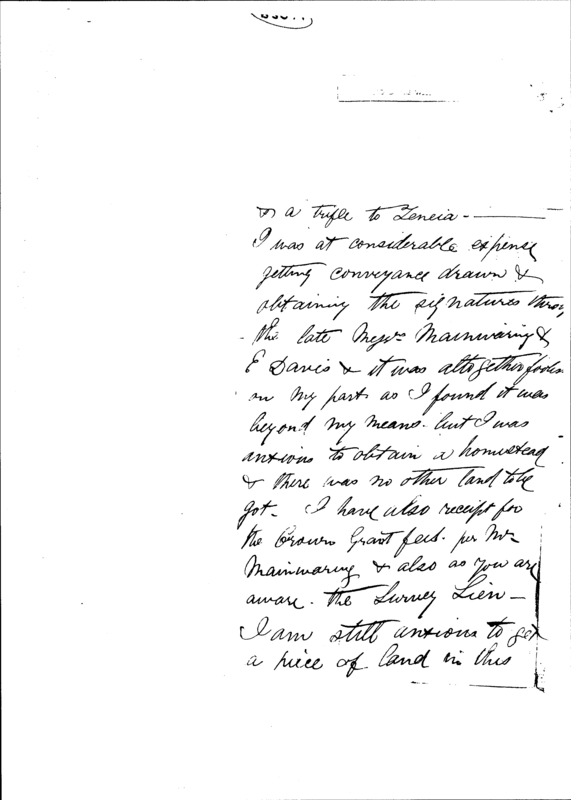 & a trifle to Zeneia -
I was at considerable expense
getting conveyance drawn &
obtaining the signatures throu
the late Messrs Mainwaring &
E Davis & it was altogether foolis
on my part as I found it was
beyond my means. but I was
anxious to obtain a homestead
& there was no other land to be
got - I have also receipt for
the Crown Grant fees. per Mr
Mainwaring & also as you are
aware. the Survey Lien -
I am still anxious to get
a piece of land in this